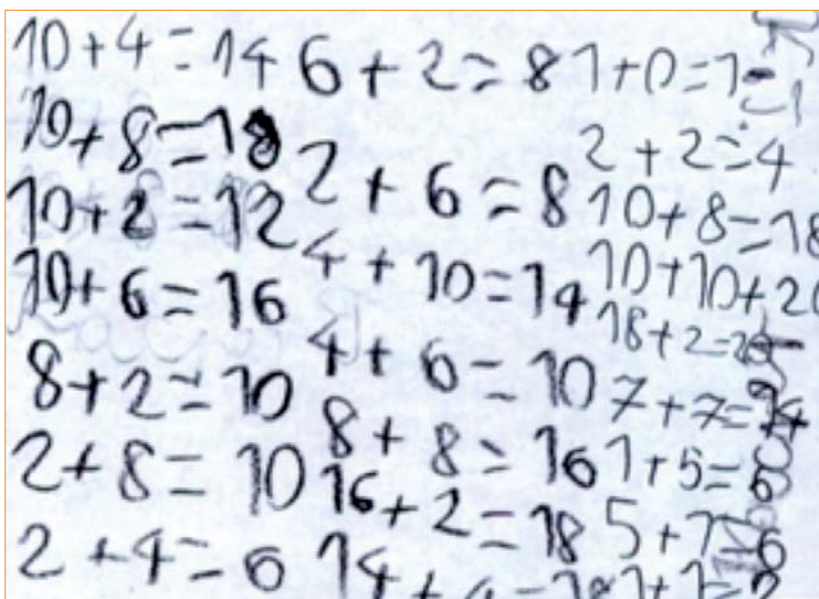 10+4=14
10+8=18
10+2=12
10+6=16
8+2=10
2+8=10
2+4=6
6+2=8
2+6=8
4+10=14
4+6=10
8+8=16
16+2=18
14+4=18
1+0=1
2+2=4
10+8=18
10+10+20
18+2=20
7+7=14
1+5=6
5+1=6
1+1=2